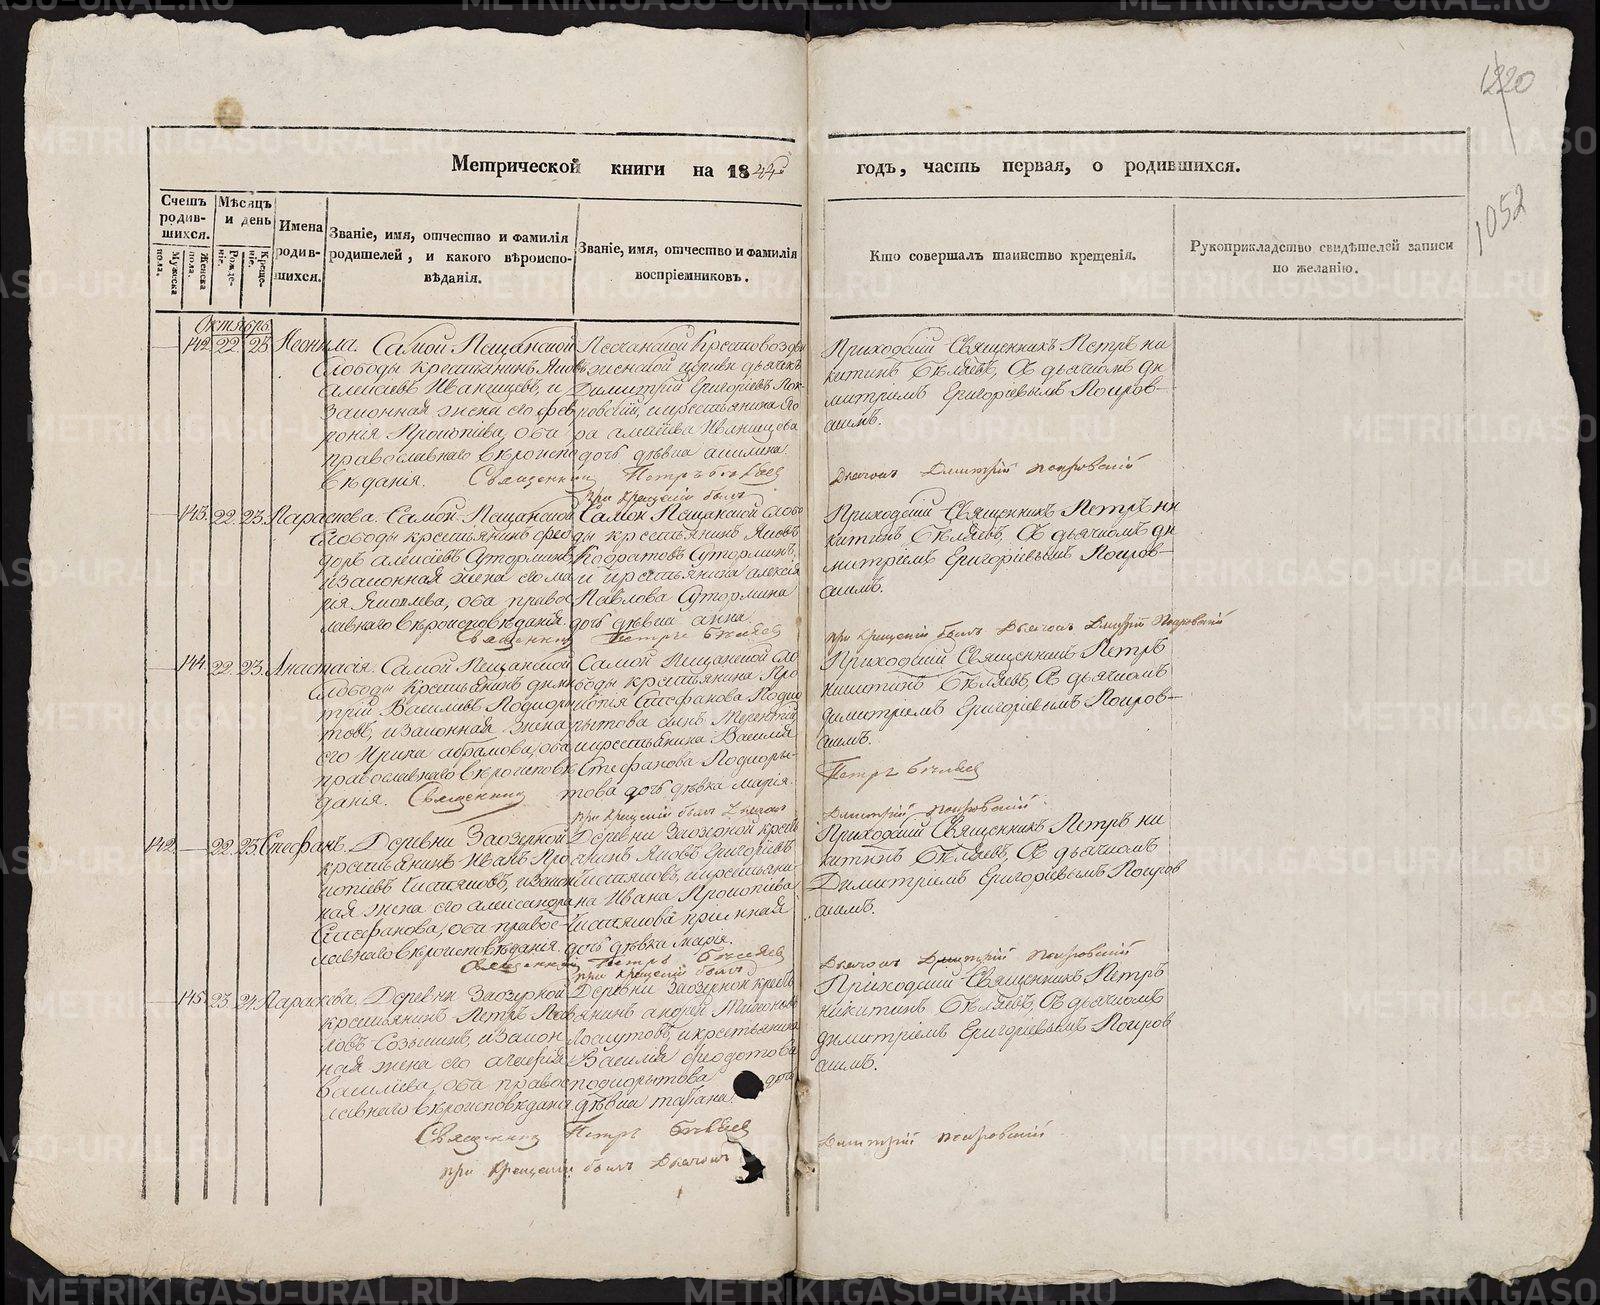 1220
1052
Метрической книги на 1844й годъ, часть первая, о родившихся.
Счетъ родившихся.
Мужеска пола.
Женска пола.
Мѣсяцъ и день
Рожденіе.
Крещеніе.
Имена родившихся.
Званіе, имя, отчество и фамилія родителей, и какого вѣроисповѣданія.
Званіе, имя, отчество и фамилія воспріемниковъ.
Кто совершалъ таинство крещенія.
Рукоприкладство свидѣтелей записи по желанію.
Октябрь
142. 22. 23. Неонила.
Самой Пещанской
Слободы крестьянинъ Яковъ
Алексѣевъ Иванищевъ, и
законная жена его Фев
ронія Прокопіева, оба
православнаго вѣроиспо
вѣданія.
Песчанской Крестовоздви
женской церкви дьячекъ
Димитрій Григоріевъ Пок
ровскій, и крестьянина Яко
ва Алексѣева Иванищева
дочь дѣвка Акилина.
Священникъ Петръ Бѣляевъ
при крещеніи былъ
Приходскій Священникъ Петръ Ни
китинъ Бѣляевъ, Съ дьячкомъ Ди
митріемъ Григорьевымъ Покров-
скимъ.
Дьячокъ Димитрій Покровскій
143. 22. 23. Параскева.
Самой Пещанской
Слободы крестьянинъ Фео
доръ Алексѣевъ Суторминъ,
и законная жена его Ма
рія Яковлева, оба правос
лавнаго вѣроисповѣданія.
Самой Пещанской Слобо
ды крестьянинъ Яковъ
Кодратовъ Суторминъ,
и крестьянина Алексія
Павлова Сутормина
дочь дѣвка Анна.
Священникъ Петръ Бѣляевъ
Приходскій Священникъ Петръ Ни
китинъ Бѣляевъ, Съ дьячкомъ Ди
митріемъ Григорьевымъ Покров-
скимъ.
при крещеніи былъ Дьячокъ Димитрій Покровскій
144. 22. 23. Анастасія.
Самой Пещанской
Слободы крестьянинъ Дими
трій Васильевъ Подкоры
товъ, и законная жена
его Ирина Абрамова, оба
православнаго вѣроисповѣ
данія.
Самой Пещанской Сло
боды крестьянина Про
копія Стефанова Подко
рытова сынъ Терентій,
и крестьянина Василія
Стефанова Подкоры-
това дочь дѣвка Марія.
Священникъ
при крещеніи былъ Дьячокъ
Приходскій Священникъ Петръ
Никитинъ Бѣляевъ, Съ дьячкомъ
Димитріемъ Григорьевымъ Покров-
скимъ.
Петръ Бѣляевъ
Димитрій Покровскій
142. 22. 23. Стефанъ.
Деревни Заозерной
крестьянинъ Иванъ Про
копіевъ Чистяковъ, и закон
ная жена его Александра
Стефанова, оба правос-
лавнаго вѣроисповѣданія.
Деревни Заозерной крестья
нинъ Яковъ Григорьевъ
Чистяковъ, и крестьяни
на Ивана Прокопіева
Чистякова пріемная
дочь дѣвка Марія.
Священникъ Петръ Бѣляевъ
при крещеніи былъ
Приходскій Священникъ Петръ Ни
китинъ Бѣляевъ, Съ дьячкомъ
Димитріемъ Григорьевымъ Покров
скимъ.
Дьячокъ Димитрій Покровскій
145. 23. 24. Параскева.
Деревни Заозерной
крестьянинъ Петръ Пав
ловъ Созыкинъ, и закон
ная жена его
Васильева, оба правос
лавнаго вѣроисповѣданія.
Деревни Заозерной кресть
янинъ Андрей
Лоскутовъ, и крестьянина
Василія Феодотова
Подкорытова дочь
дѣвка Татіана.
Священникъ Петръ Бѣляевъ
при крещеніи былъ Дьячокъ
Приходскій Священникъ Петръ
Никитинъ Бѣляевъ, Съ дьячкомъ
Димитріемъ Григорьевымъ Покров
скимъ.
Димитрій Покровскій
METRIKI.GASO-URAL.RU